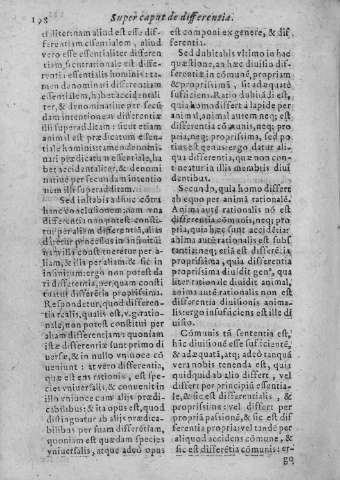 198 Super caput de differentia.
cialiter: nam aliud est esse dif-
ferentiam essentialem, aliud
vero esse essentialiter differen-
tiam, sicut rationale est diffe-
rentia essentialis hominis: ta-
men denominari differentiam
essentialem, habet accidental-
ter, & denominatiue per secū-
dam intentionem differentiæ
illi superadditam: sicut etiam
animal est prædicatum essen-
tiale hominis tamen denomi-
nari prædicatum essentiale, ha
bet accidentaliter, & denomi
natiue per secundam intentio
nem illi superadditam.
Sed instabis aduersus
hanc conclusionem: nam vna
differentia non consti-
tur per aliam differentiā, aliàs
daretur processus in infinitū
nam illa constitueretur per a-
liam, & illa per aliam & sic in
infinitum: ergo non potest da
ri differentia, per quam consti
tuatur differētia proprissima.
Respondetur, quod differen-
tia realis, qualis est, v.g. ratio-
nale, non potest constitui per
aliam differentiam: quoniam
istæ differentiæ sunt primo di
uersæ, & in nullo vniuoce cō
ueniunt: at vero differentia,
quæ est ens rationis, est spe-
cies vniuersalis, & conuenit in
illi vniuoce cum alijs prædi-
cabilibus: & ita opus est, quod
distinguatur ab alijs prædica-
bilibus per suam differētiam,
quoniam est quædam species
vniuersalis, atque adeo opus
est componi ex genere, & dif.
Sed dubitabis vltimo in hac
quæstione, an hæc diuisio dif-
ferentiæ in cōmune, propriam
& proprissimā, sit adæquatè
sufficiens. Ratio dubitādi est,
quia homo differt à lapide per
animal, animal autem neq; est
differentia cōmunis, neq; pro
pria, neq; proprissima, sed po
tius est genus: ergo datur ali-
qua differentia, quæ non con-
tineatur in illis membris diui
dentibus.
Secundo, quia homo differt
ab equo per animā rationalē.
Anima autē rationalis nō est
differentia cōmunis, neq; pro
pria, quia hæ sunt accidētia:
anima autē rationalis est subs
tantia: neq; etiā est differētia
proprissima, quia differentia
proprissima diuidit genꝰ, qua
liter rationale diuidit animal,
anima autē rationalis non est
differentia diuisionis anima-
lis: ergo insuficiens est ille di
uisio.
Cōmunis tñ sententia est,
hāc diuisionē esse sufficientē,
& adæquatā, atq; adeò tanquā
vera nobis tenenda est, quia
quidquid ab alio differt, vel
differt per principiū essentia-
le, & sic est differentialis, &
proprissima: vel differt per
propriā passionē, & sic est dif
ferentia propria: vel tandē per
aliquod accidens cōmune, &
sic est differētia cōmunis: er-
go